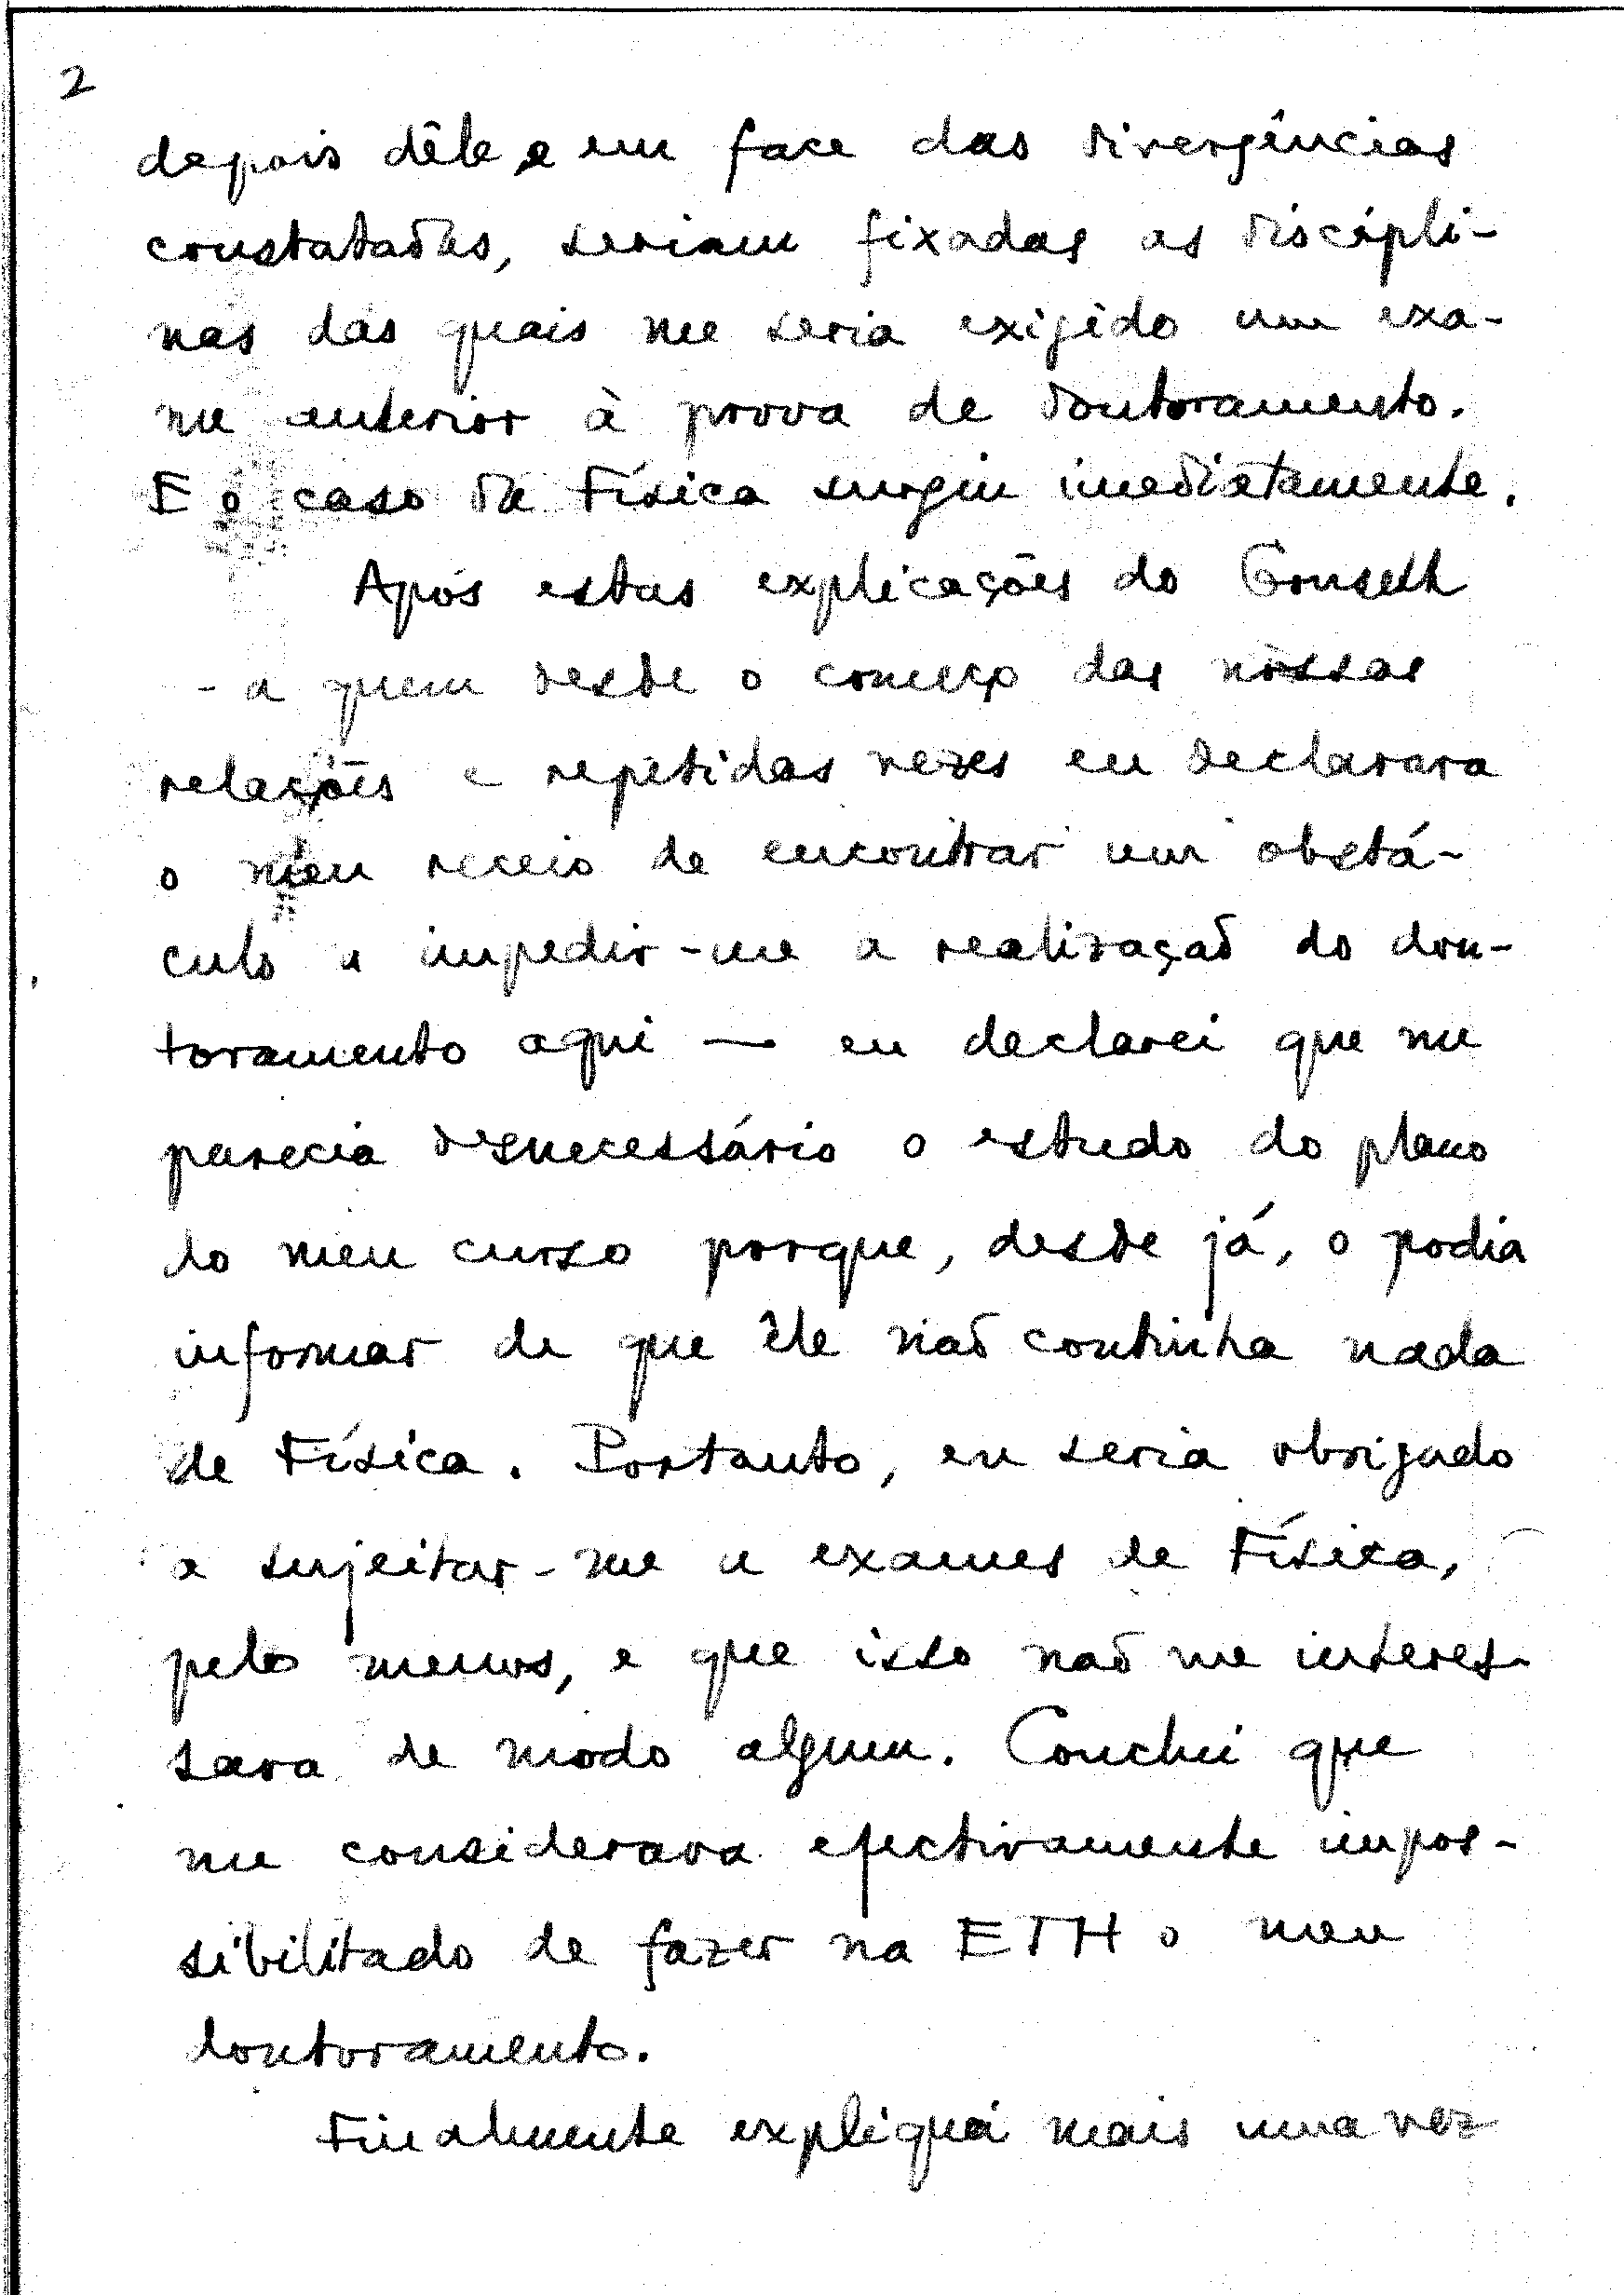 2
depois dêle e em face das divergências
constatadas, seriam fixadas as discipli-
nas das quais me seria exigido um exa-
me anterior à prova de doutoramento.
E o caso da Física surgiu imediatamente.
Após estas explicações do Gonseth
- a quem desde o começo das nossas
relações e repetidas vezes eu declarara
o meu receio de encontrar um obstá-
culo a impedir-me a realização do dou-
toramento aqui — eu declarei que me
parecia desnecessário o estudo do plano
do meu curso porque, desde já, o podia
informar de que êle não continha nada
de Física. Portanto, eu seria obrigado
a sujeitar-me a exames de Física,
pelo menos, e que isso não me interes-
sava de modo algum. Conclui que
me considerava efectivamente impos-
sibilitado de fazer na ETH o meu
doutoramento.
Finalmente expliquei mais uma vez